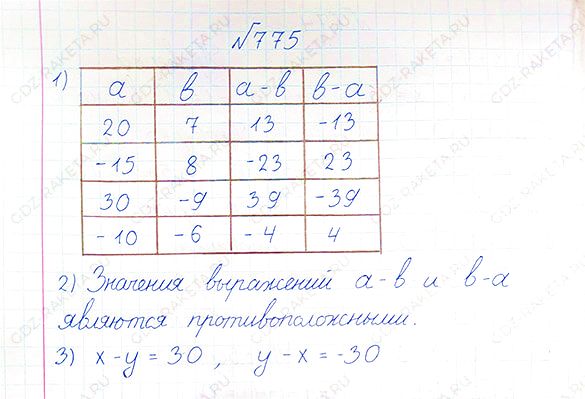 №775
1)
а в а-в в-а
20 7 13 -13
-15 8 -23 23
30 -9 39 -39
-10 -6 -4 4
2) Значения выражений а-в и в-а
являются противоположными.
3) x-y = 30 , y-x = -30